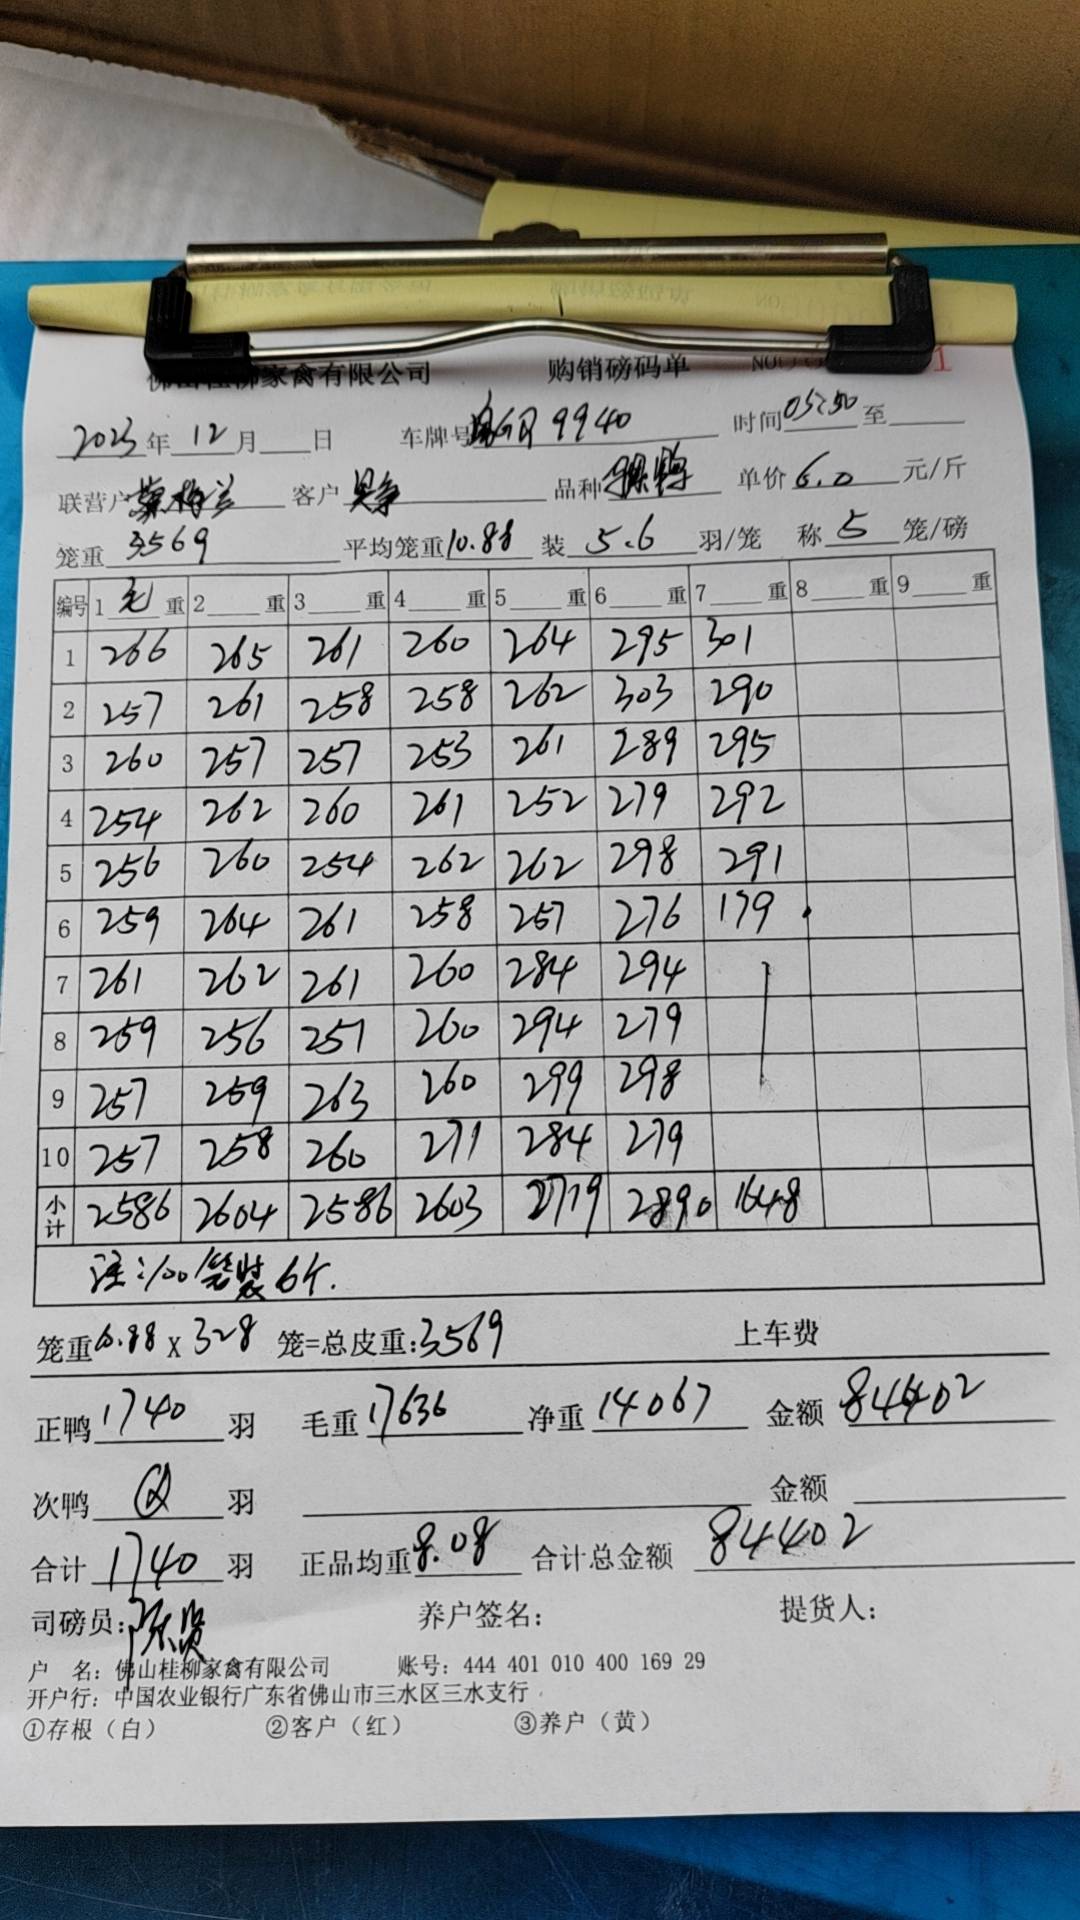 佛山桂柳家禽有限公司 购销磅码单 NO 1
2023年 12月 日 车牌号 9940 时间 05:50 至
联营户 客户 品种 单价 6.0 元/斤
笼重 3569 平均笼重 10.88 装 5.6 羽/笼 称 5 笼/磅
编号 1 毛 重 2 重 3 重 4 重 5 重 6 重 7 重 8 重 9 重
1 266 265 261 260 264 295 301
2 257 261 258 258 262 303 290
3 260 257 257 253 261 289 295
4 254 262 260 261 252 279 292
5 256 260 254 262 262 298 291
6 259 264 261 258 257 276 179
7 261 262 261 260 284 294
8 259 256 251 260 294 279
9 257 259 263 260 299 298
10 257 258 260 271 284 279
小计 2586 2604 2586 2603 2719 2890 1648
注:100笼装6个.
笼重 10.88 X 328 笼=总皮重:3569 上车费
正鸭 1740 羽 毛重 17636 净重 14067 金额 84402
次鸭 羽 金额
合计 1740 羽 正品均重 8.08 合计总金额 84402
司磅员: 养户签名: 提货人:
户 名: 佛山桂柳家禽有限公司 账号: 444 401 010 400 169 29
开户行: 中国农业银行广东省佛山市三水区三水支行
①存根（白） ②客户（红） ③养户（黄）